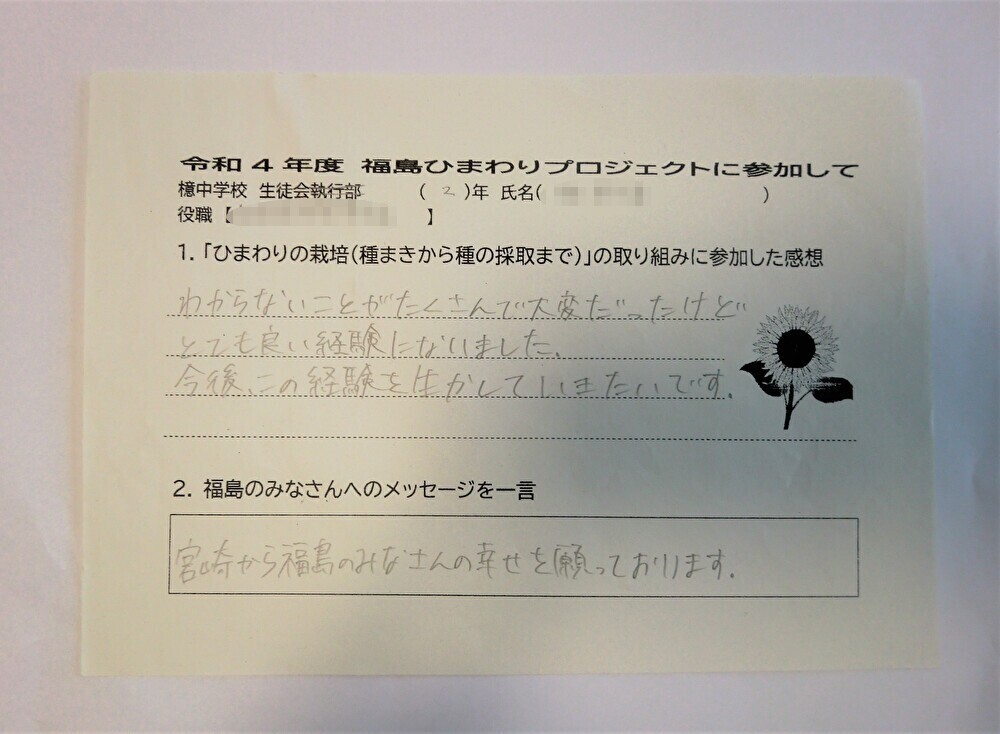 令和4年度 福島ひまわりプロジェクトに参加して
檍中学校 生徒会執行部 (2)年 氏名( )
役職【 】
1.「ひまわりの栽培(種まきから種の採取まで)」の取り組みに参加した感想
わからないことがたくさんで大変だったけど
とても良い経験になりました。
今後、この経験を生かしていきたいです。
2. 福島のみなさんへのメッセージを一言
宮崎から福島のみなさんの幸せを願っております。